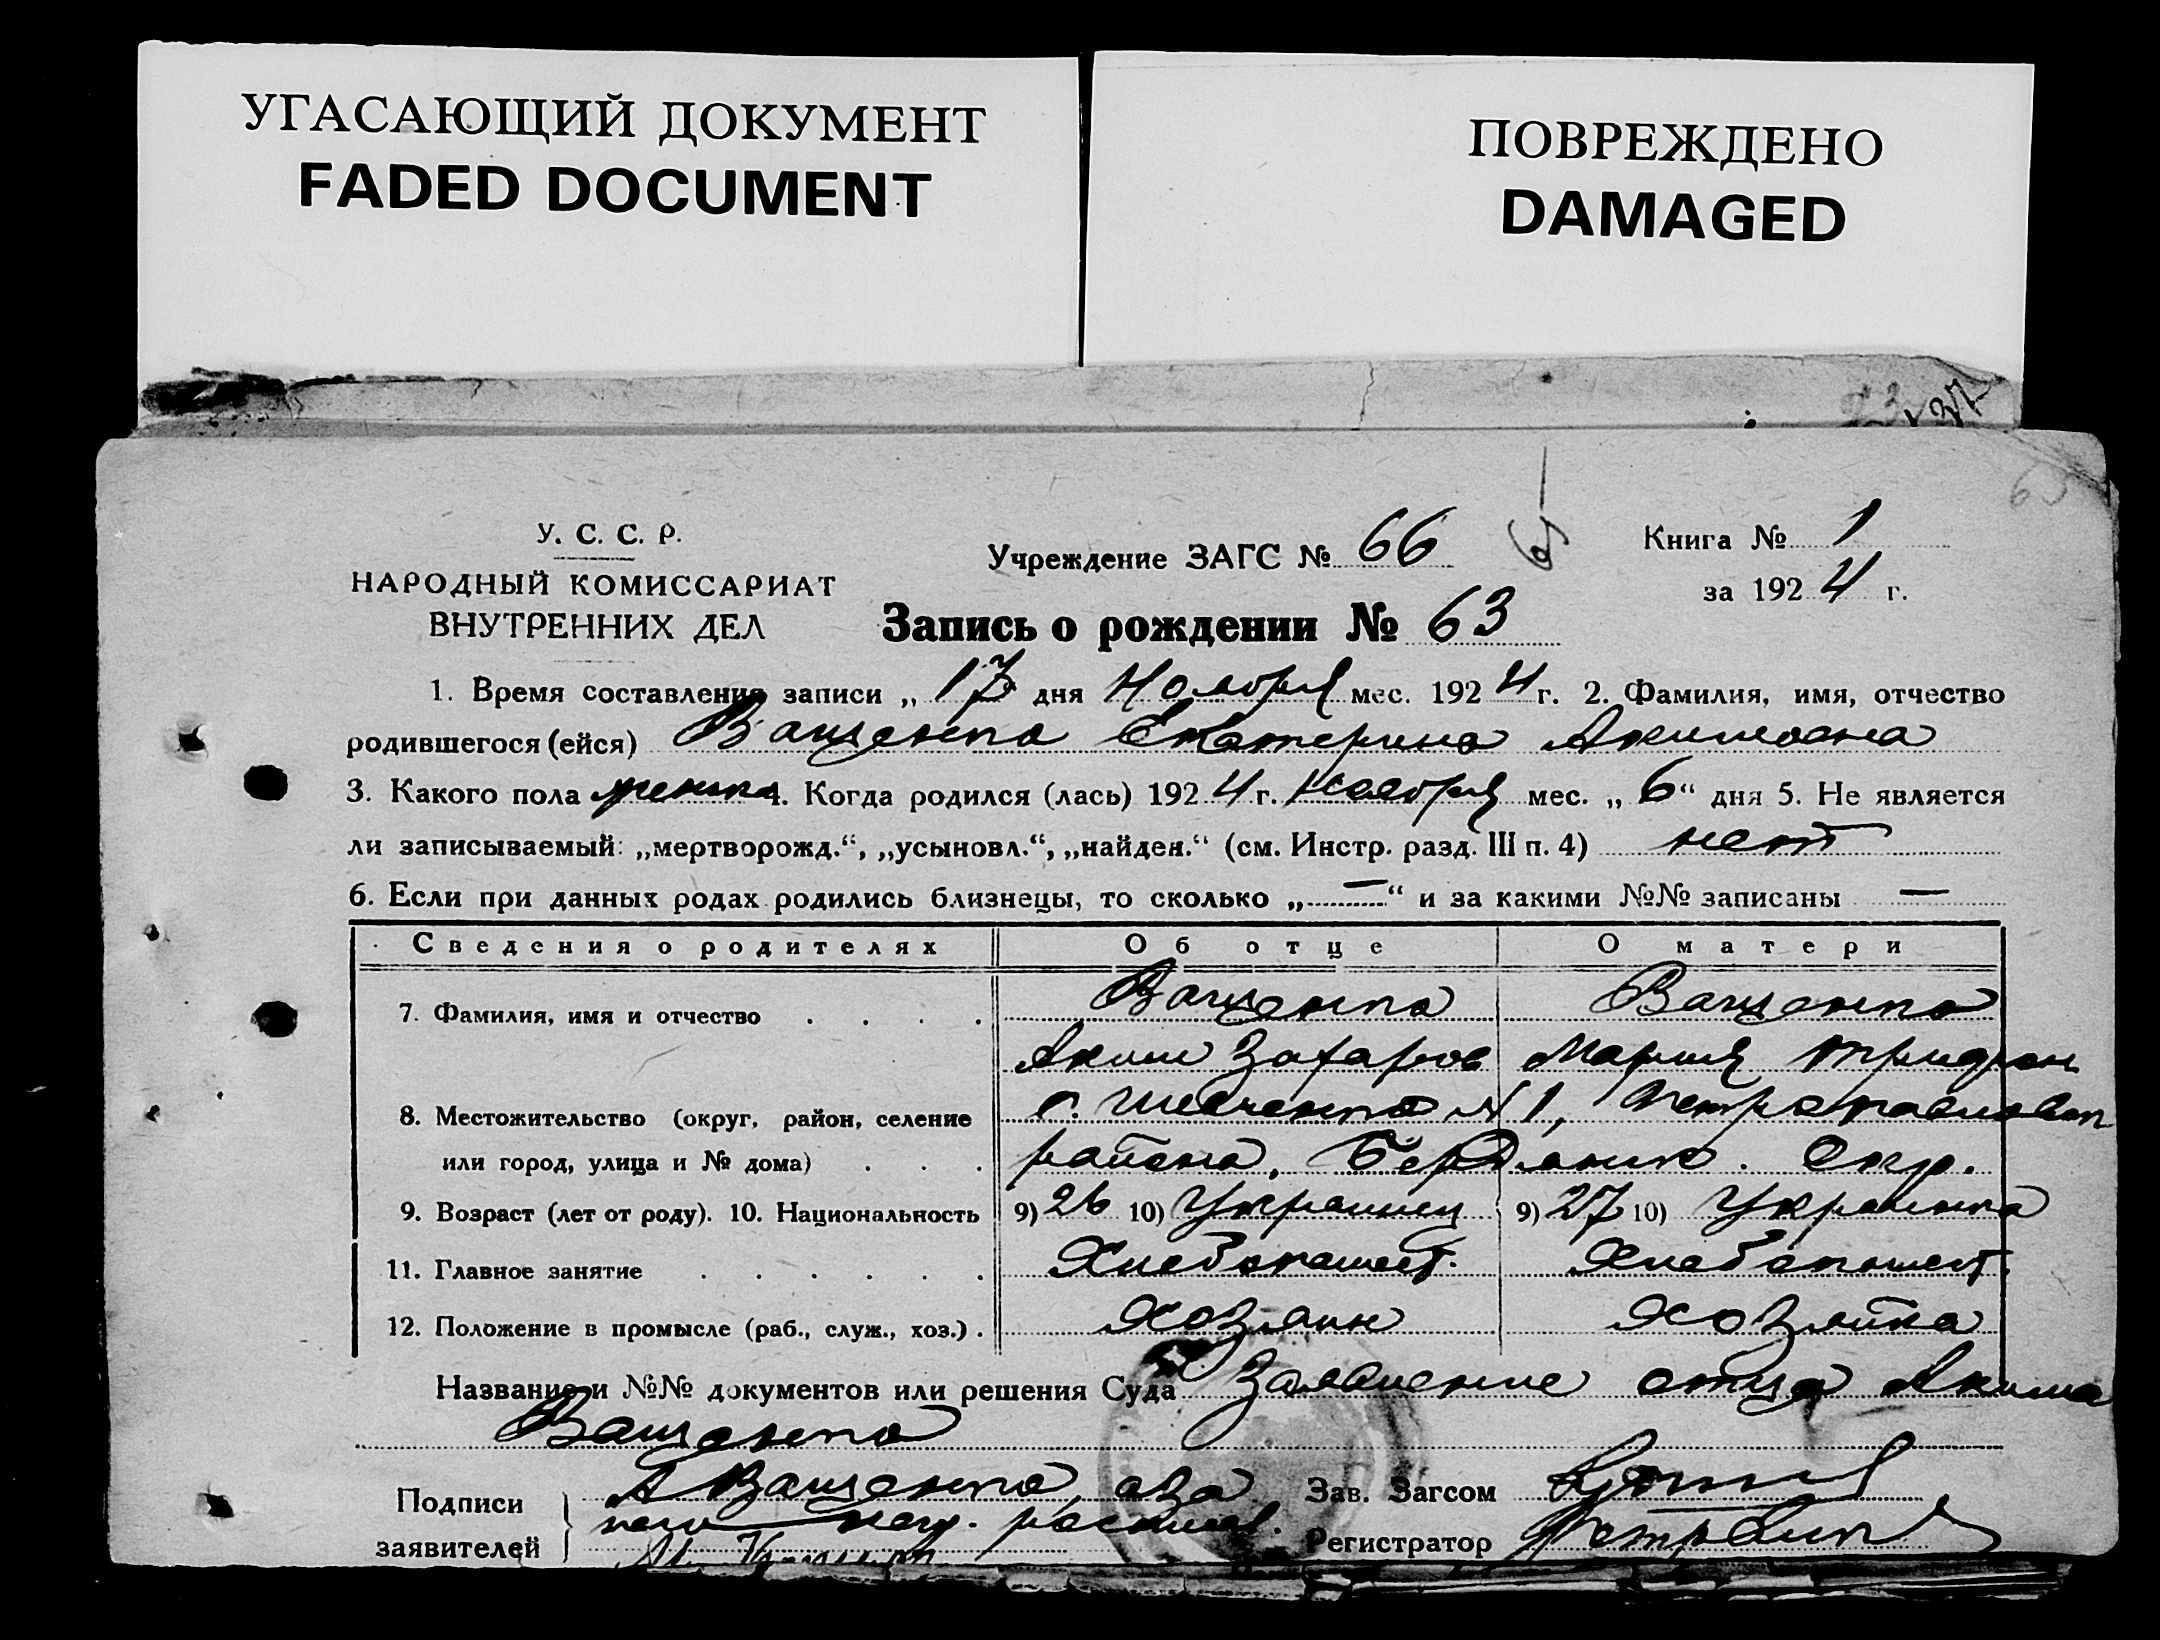 УГАСАЮЩИЙ ДОКУМЕНТ
FADED DOCUMENT
ПОВРЕЖДЕНО
DAMAGED
У. С. С. Р.
НАРОДНЫЙ КОМИССАРИАТ
ВНУТРЕННИХ ДЕЛ
Учреждение ЗАГС № 66
Книга № 1
за 1924 г.
Запись о рождении № 63
1. Время составления записи „ 17 дня Ноября мес. 1924 г. 2. Фамилия, имя, отчество
родившегося (ейся) Ващенко Екатерина Акимовна
3. Какого пола женска 4. Когда родился (лась) 1924 г. Ноября мес. „ 6 “ дня 5. Не является
ли записываемый: „мертворожд.“, „усыновл.“, „найден.“ (см. Инстр. разд. III п. 4) нет
6. Если при данных родах родились близнецы, то сколько „ — “ и за какими №№ записаны —
Сведения о родителях Об отце О матери
7. Фамилия, имя и отчество Ващенко Ващенко
Аким Захаров Мария Трифон
8. Местожительство (округ, район, селение с. Шевченко № 1, Петропавловск
или город, улица и № дома) района, Бердянск. Окр.
9. Возраст (лет от роду). 10. Национальность 9) 26 10) Украинец 9) 27 10) Украинка
11. Главное занятие Хлебопашест. Хлебопашест.
12. Положение в промысле (раб., служ., хоз.) Хозяин Хозяйка
Название и №№ документов или решения Суда Заявление отца Акима
Ващенко
Подписи А Ващенко, а за Зав. Загсом
заявителей него негр. расписал. Регистратор